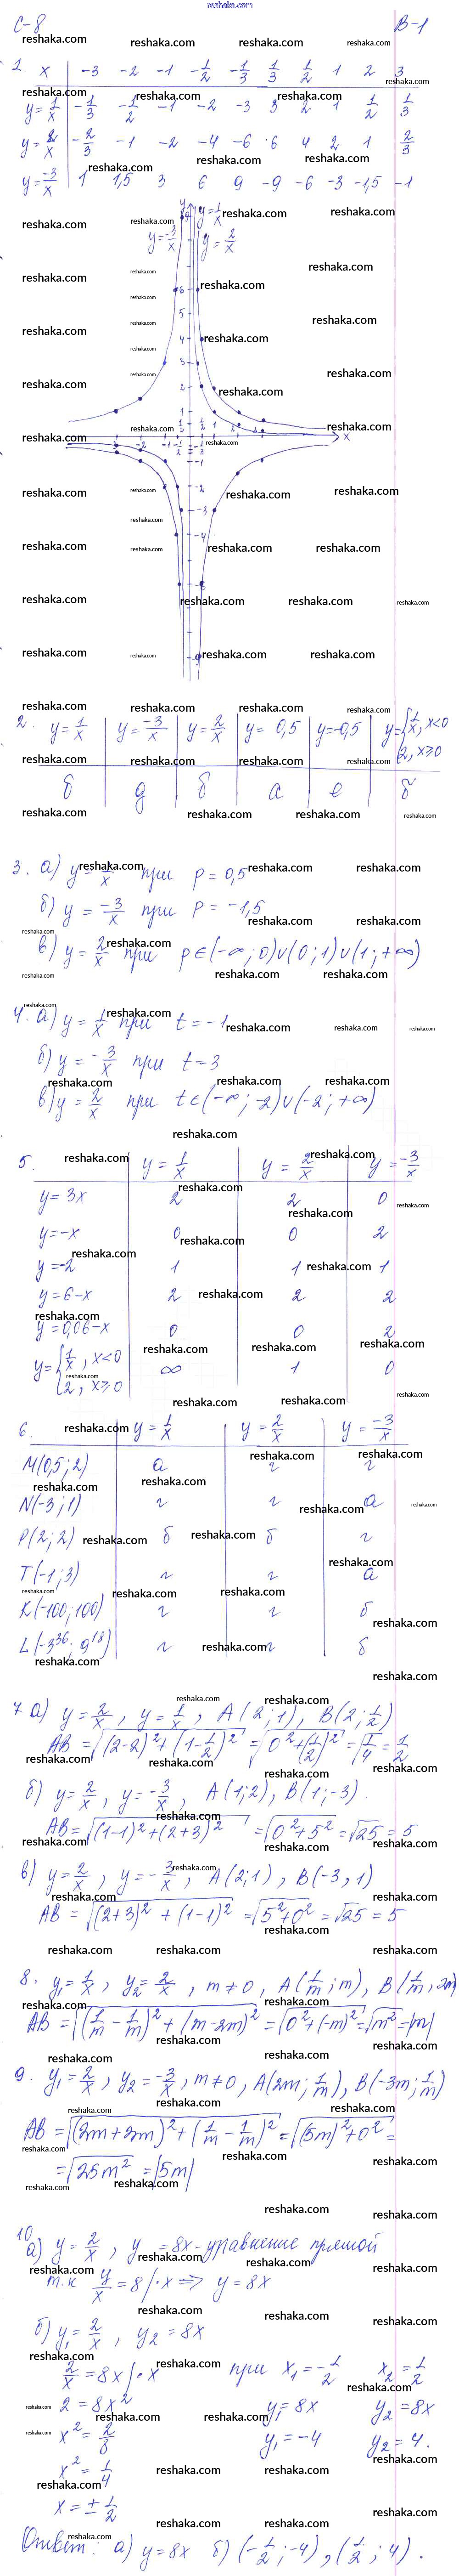 reshaka.com
С-8 В-1
1. x -3 -2 -1 -1/2 -1/3 1/3 1/2 1 2 3
y=1/x -1/3 -1/2 -1 -2 -3 3 2 1 1/2 1/3
y=2/x -2/3 -1 -2 -4 -6 6 4 2 1 2/3
y=-3/x 1 1,5 3 6 9 -9 -6 -3 -1,5 -1
y=-3/x y=1/x
y=2/x
2. y=1/x y=-3/x y=2/x y=0,5 y=-0,5 y={1/x, x<0
2, x≥0
б д б а е б
3. а) y=1/x при p=0,5
б) y=-3/x при p=-1,5
в) y=2/x при p∈(-∞;0)∪(0;1)∪(1;+∞)
4. а) y=1/x при t=-1
б) y=-3/x при t=3
в) y=2/x при t∈(-∞;-2)∪(-2;+∞)
5. y=1/x y=2/x y=-3/x
y=3x 2 2 0
y=-x 0 0 2
y=-2 1 1 1
y=6-x 2 2 2
y=0,06-x 0 0 2
y={1/x, x<0
2, x≥0 ∞ 1 0
6. y=1/x y=2/x y=-3/x
M(0,5;2) а г г
N(-3;1) г г а
P(2;2) б б г
T(-1;3) г г а
K(-100;100) г г б
L(-3^36;9^18) г г б
7 а) y=2/x, y=1/x, A(2;1), B(2;1/2)
AB=√((2-2)²+(1-1/2)²)=√(0²+(1/2)²)=√(1/4)=1/2
б) y=2/x, y=-3/x, A(1;2), B(1;-3).
AB=√((1-1)²+(2+3)²)=√(0²+5²)=√25=5
в) y=2/x, y=-3/x, A(2;1), B(-3,1)
AB=√((2+3)²+(1-1)²)=√(5²+0²)=√25=5
8. y₁=1/x, y₂=2/x, m≠0, A(1/m;m), B(1/m,2m)
AB=√((1/m-1/m)²+(m-2m)²)=√(0²+(-m)²)=√m²=|m|
9. y₁=2/x, y₂=-3/x, m≠0, A(2m;1/m), B(-3m;1/m)
AB=√((2m+3m)²+(1/m-1/m)²)=√((5m)²+0²)=
=√(25m²)=|5m|
10
а) y=2/x, y=8x-уравнение прямой
т.к y/x=8 |·x ⇒ y=8x
б) y₁=2/x, y₂=8x
2/x=8x |·x при x₁=-1/2 x₂=1/2
2=8x² y₁=8x y₂=8x
x²=2/8 y₁=-4 y₂=4.
x²=1/4
x=±1/2
Ответ: а) y=8x б) (-1/2;-4), (1/2;4).